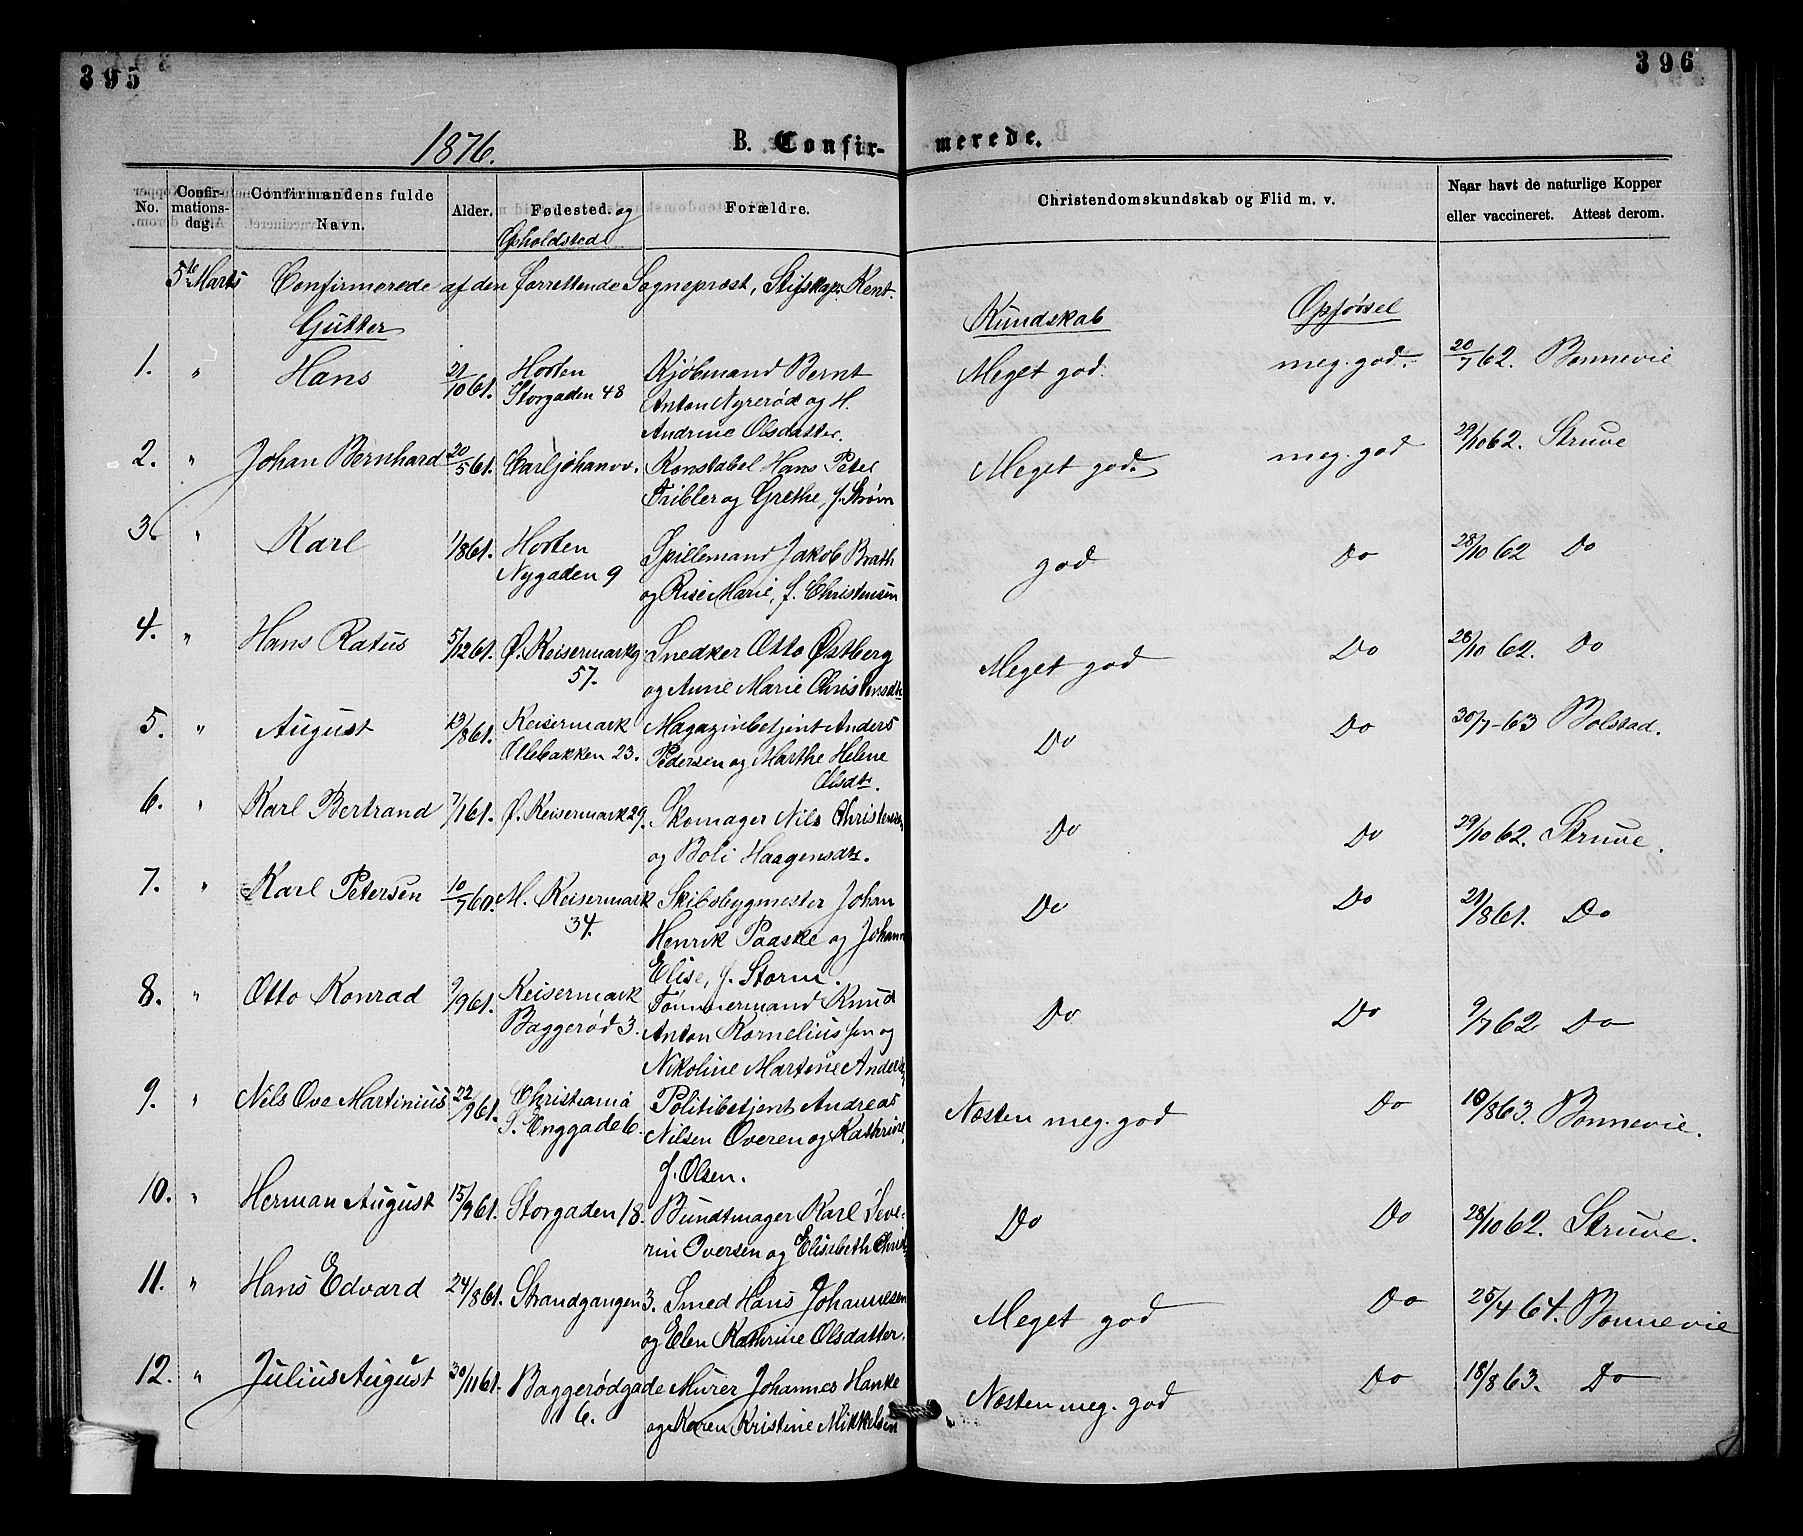 395
396
1876.
B. Confir-
merede.
No.
Confir-
mations-
dag.
Confirmandens fulde
Navn.
Alder.
Fødested. og
Opholdsted
Forældre.
Christendomskundskab og Flid m. v.
Naar havt de naturlige Kopper
eller vaccineret. Attest derom.
5te Marts Confirmerede af den forrettende Sognepræst, Stifskap. Kent.
Gutter
Kundskab Opførsel
1. " Hans 21/10 61. Horten Kjøbmand Bernt Meget god. meg. god. 20/7 62. Bonnevie
Storgaden 48 Anton Nyrerød og H.
Andrine Olsdatter.
2. " Johan Bernhard 20/5 61. Carljohansv. Konstabel Hans Peter Meget god. meg. god 29/10 62. Struve
Tribler og Grethe, f. Strøm
3. " Karl 1/8 61. Horten Spillemand Jakob Brath god Do 28/10 62 Do
Nygaden 9 og Rise Marie, f. Christensen
4. " Hans Ratus 5/12 61. Ø. Keisermarkg. Snedker Otto Østberg Meget god Do 28/10 62. Do
57. og Anne Marie Christensdtr
5. " August 13/8 61. Keisermark Magazinbetjent Anders Do Do 30/7-63 Bolstad.
Ollebakken 23. Pedersen og Marthe Helene
Olsdtr.
6. " Karl Bertrand 7/1 61. Ø. Keisermark 29. Skomager Nils Christensen Do Do 29/10 62. Struve.
og Boli Haagensdtr.
7. " Karl Petersen 10/7 60. M. Keisermark Skibsbygmester Johan Do Do 21/8 61. Do
34. Henrik Paaske og Johann
Elise, f. Storm.
8. " Otto Konrad 9/9 61. Keisermark Tømmermand Knud Do Do 9/7 62 Do
Baggerød 3. Anton Korneliussen og
Nikoline Martine Anders
9. " Nils Ove Martinius 22/9 61. Christiania Politibetjent Andreas Næsten meg. god Do 18/8 63. Bonnevie.
S. Enggade 6. Nilsen Overen og Kathrine,
f. Olsen.
10. " Herman August 15/9 61. Storgaden 18. Bundtmager Karl Seve- Do Do 28/10 62. Struve.
rin Iversen og Elisebeth Christ
11. " Hans Edvard 24/8 61. Strandgangen 3. Smed Hans Johannesen Meget god Do 25/4 64. Bonnevie
og Elen Kathrine Olsdatter.
12. " Julius August 30/11 61. Baggerødgade Murer Johannes Hanke Næsten meg. god Do 18/8 63. Do
6. og Karen Kristine Mikkelsen